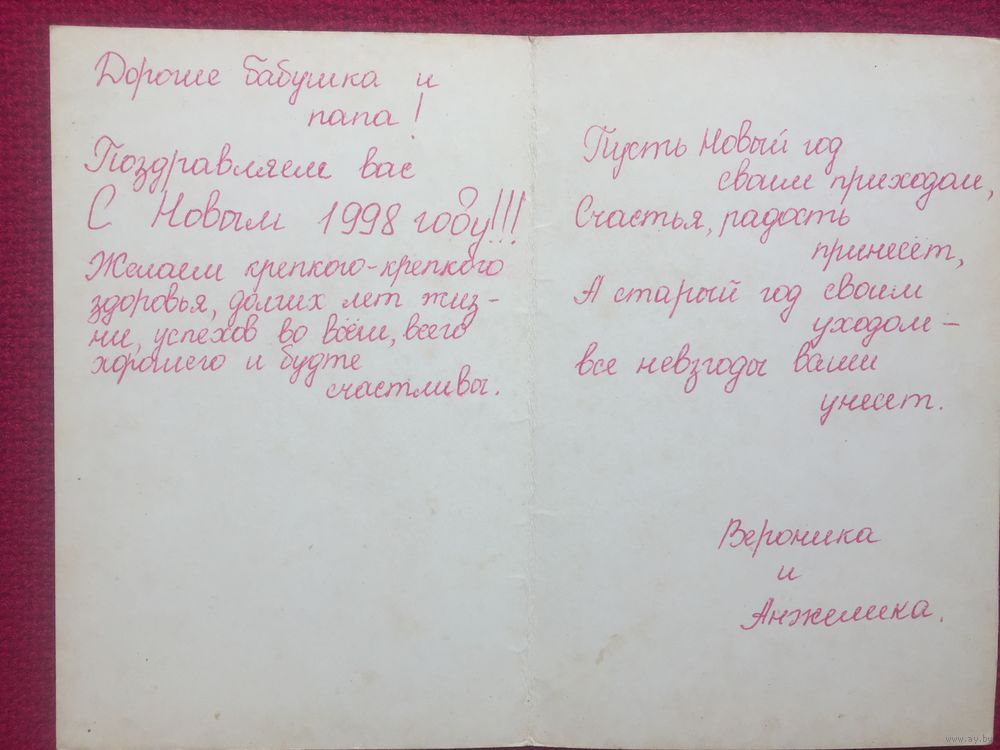 Дорогие бабушка и
папа!
Поздравляем вас
С Новым 1998 году!!!
Желаем крепкого-крепкого
здоровья, долгих лет жиз-
ни, успехов во всём, всего
хорошего и будте
счастливы.
Пусть Новый год
своим приходом,
Счастья, радость
принесёт,
А старый год своим
уходом –
все невзгоды ваши
унесет.
Вероника
и
Анжелика.
www.ay.by